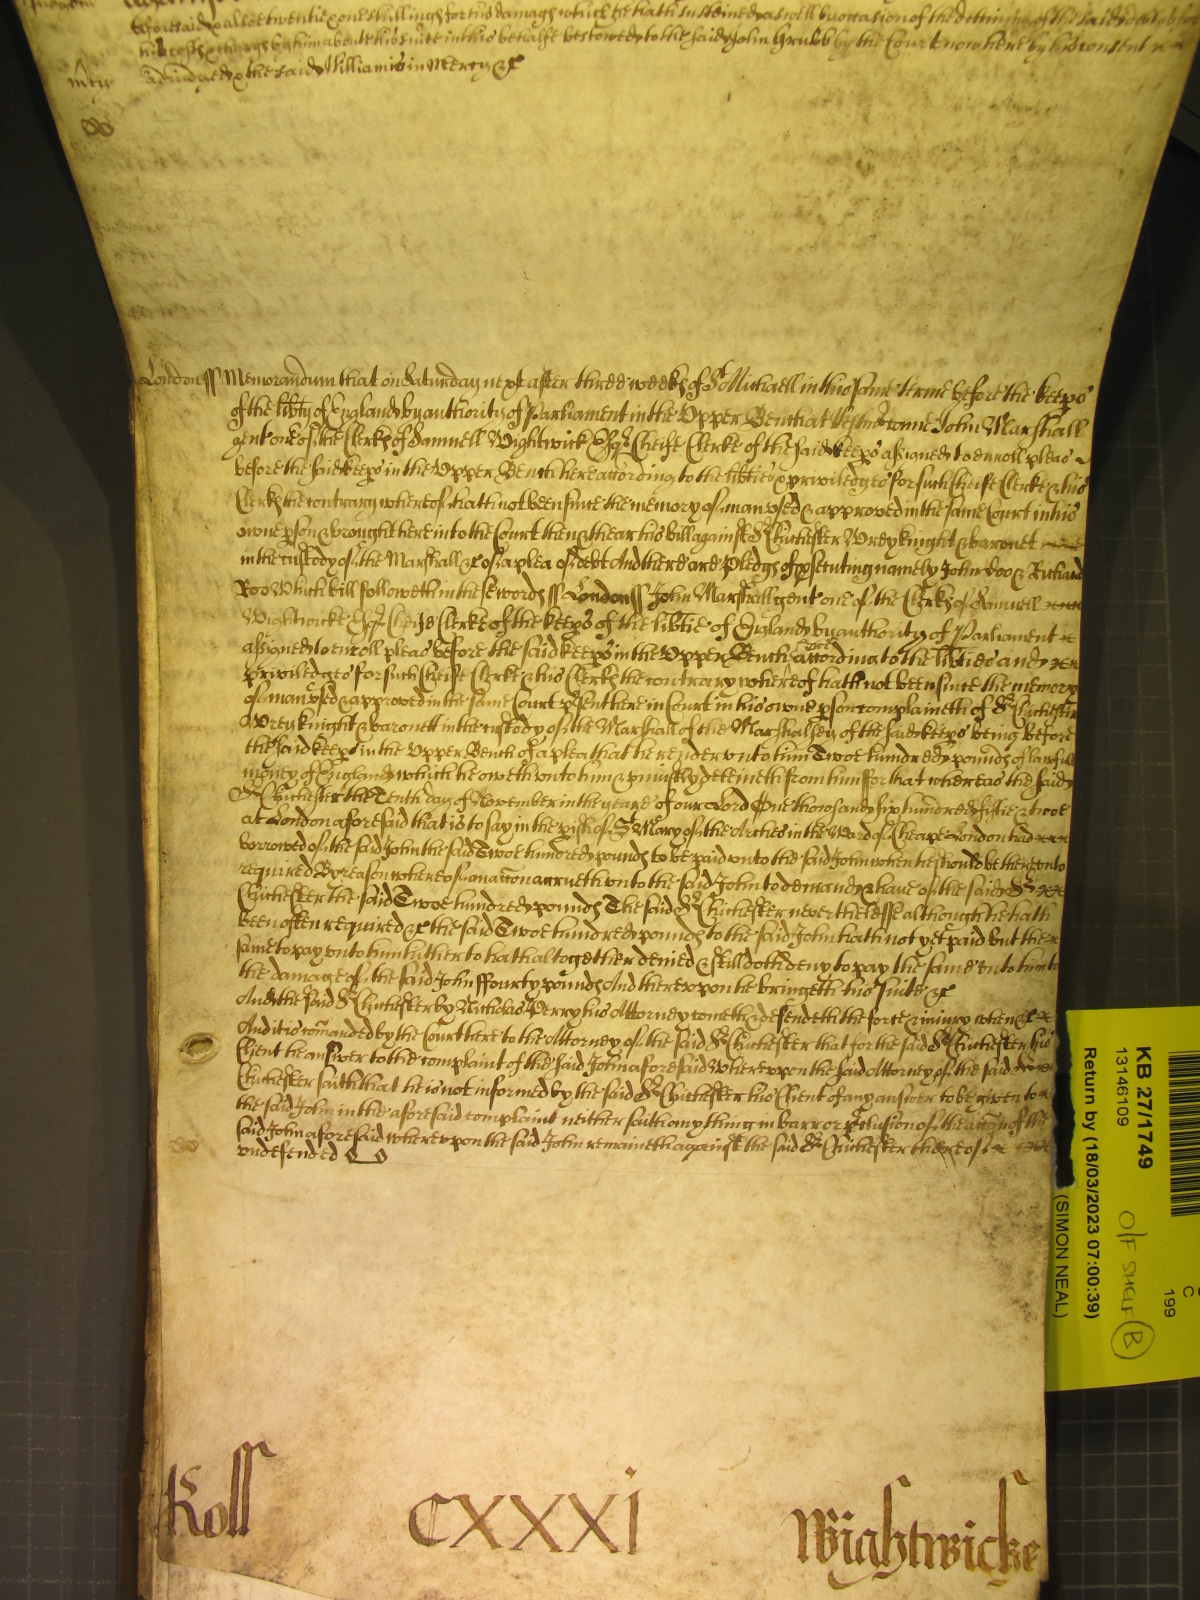 beforesaid & alsoe twentie & one shillings for his damage which he hath susteined as well by occasion of the deteininge of the said debt
his costs & charges by him about his suite in this behalfe bestowed to the said John Grubb by the Court now here by his consent
mcy adiudged & the said William is in mercy &c
London ss Memorandum that on Saturday next after three weeks of St Michaell in this same terme before the keeps
of the libty of England by authority of Parliament in the Upper Bench at Westmr came John Marshall
gent one of the Clerks of Samuell Wightwick Esqr Cheife Clerke of the said keeps assigned to enroll pleas
before the said keeps in the Upper Bench here according to the libties & priviledges for such cheife Clerke & his
Clerks the contrary whereof hath not been since the memory of man vsed & approved in the same Court in his
owne pson & brought here into the Court then & there his bill against Sr Chichester Wrey knight & baronet
in the custody of the Marshall &c of a plea of debt And there are Pledgs of psecuting namely John Doo & Richard
Roo Which bill followeth in these words ss London ss John Marshall gent one of the Clerks of Samuell
Wightwicke Esqr Cheife Clerke of the keeps of the libtie of England by authority of Parliament
assigned to enroll pleas before the said keeps in the Upper Bench according to the libties and
priviledges for such cheife Clerke & his Clerks the contrary whereof hath not been since the memory
of man vsed & approved in the same Court psent here in Court in his owne pson complaineth of Sr Chichester
Wrey knight & baronett in the custody of the Marshall of the Marshalsey of the said keeps being before
the said keeps in the Upper Bench of a plea that he render vnto him Twoe hundred pounds of lawfull
money of England which he oweth vnto him & vniustly deteineth from him for that whereas the said
Sr Chichester the Tenth day of November in the yeare of our Lord One thousand six hundred fiftie & twoe
at London aforesaid that is to say in the pish of St Mary of the Arches in the Ward of Cheape London had
borrowed of the said John the said Twoe hundred pounds to be paid vnto the said John when he should be therevnto
required By reason whereof an accon accrueth vnto the said John to demand & have of the said Sr
Chichester the said Twoe hundred pounds The said Sr Chichester neverthelesse although he hath
been often required &c the said Twoe hundred pounds to the said John hath not yet paid but the
same to pay vnto him hitherto hath altogether denied & still doth deny to pay the same vnto him to
the damage of the said John ffourty pounds And therevpon he bringeth his suite &c
And the said Sr Chichester by Nicholas Perry his Attorney cometh & defendeth the force & iniury when &c
And it is comanded by the Court here to the Attorney of the said Sr Chichester that for the said Sr Chichester his
Client he answer to the complaint of the said John aforesaid Wherevpon the said Attorney of the said Sr
Chichester saith that he is not informed by the said Sr Chichester his Client of any answer to be given to
the said John in the aforesaid complaint neither saith any thing in barr or pclusion of the accon of the
said John aforesaid wherevpon the said John remaineth against the said Sr Chichester thereof
vndefended
Roll CXXXI Wightwicke
KB 27/1749
13146109
Return by (18/03/2023 07:00:39)
(SIMON NEAL)
O/F SHELF B
199
C